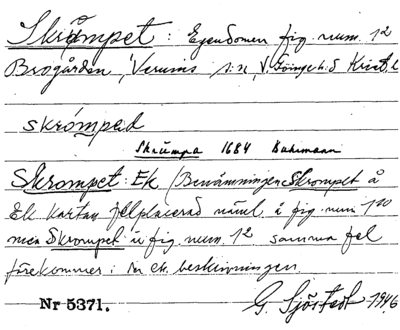 Skrömpet: Egendomen fig. num. 1²
Brogården, Verums s:n, V. Göinge h:d Krist. l.
skrómpad
Skrümpa 1684 Buhrmann
Skrompet: Ek (Benämningen Skrompet å
Ek kartan felplacerad näml. å fig. num 1¹⁰
men Skrompet är fig. num. 1² samma fel
förekommer i den ek. beskrivningen.
Nr 5371. G. Sjöstedt 1946